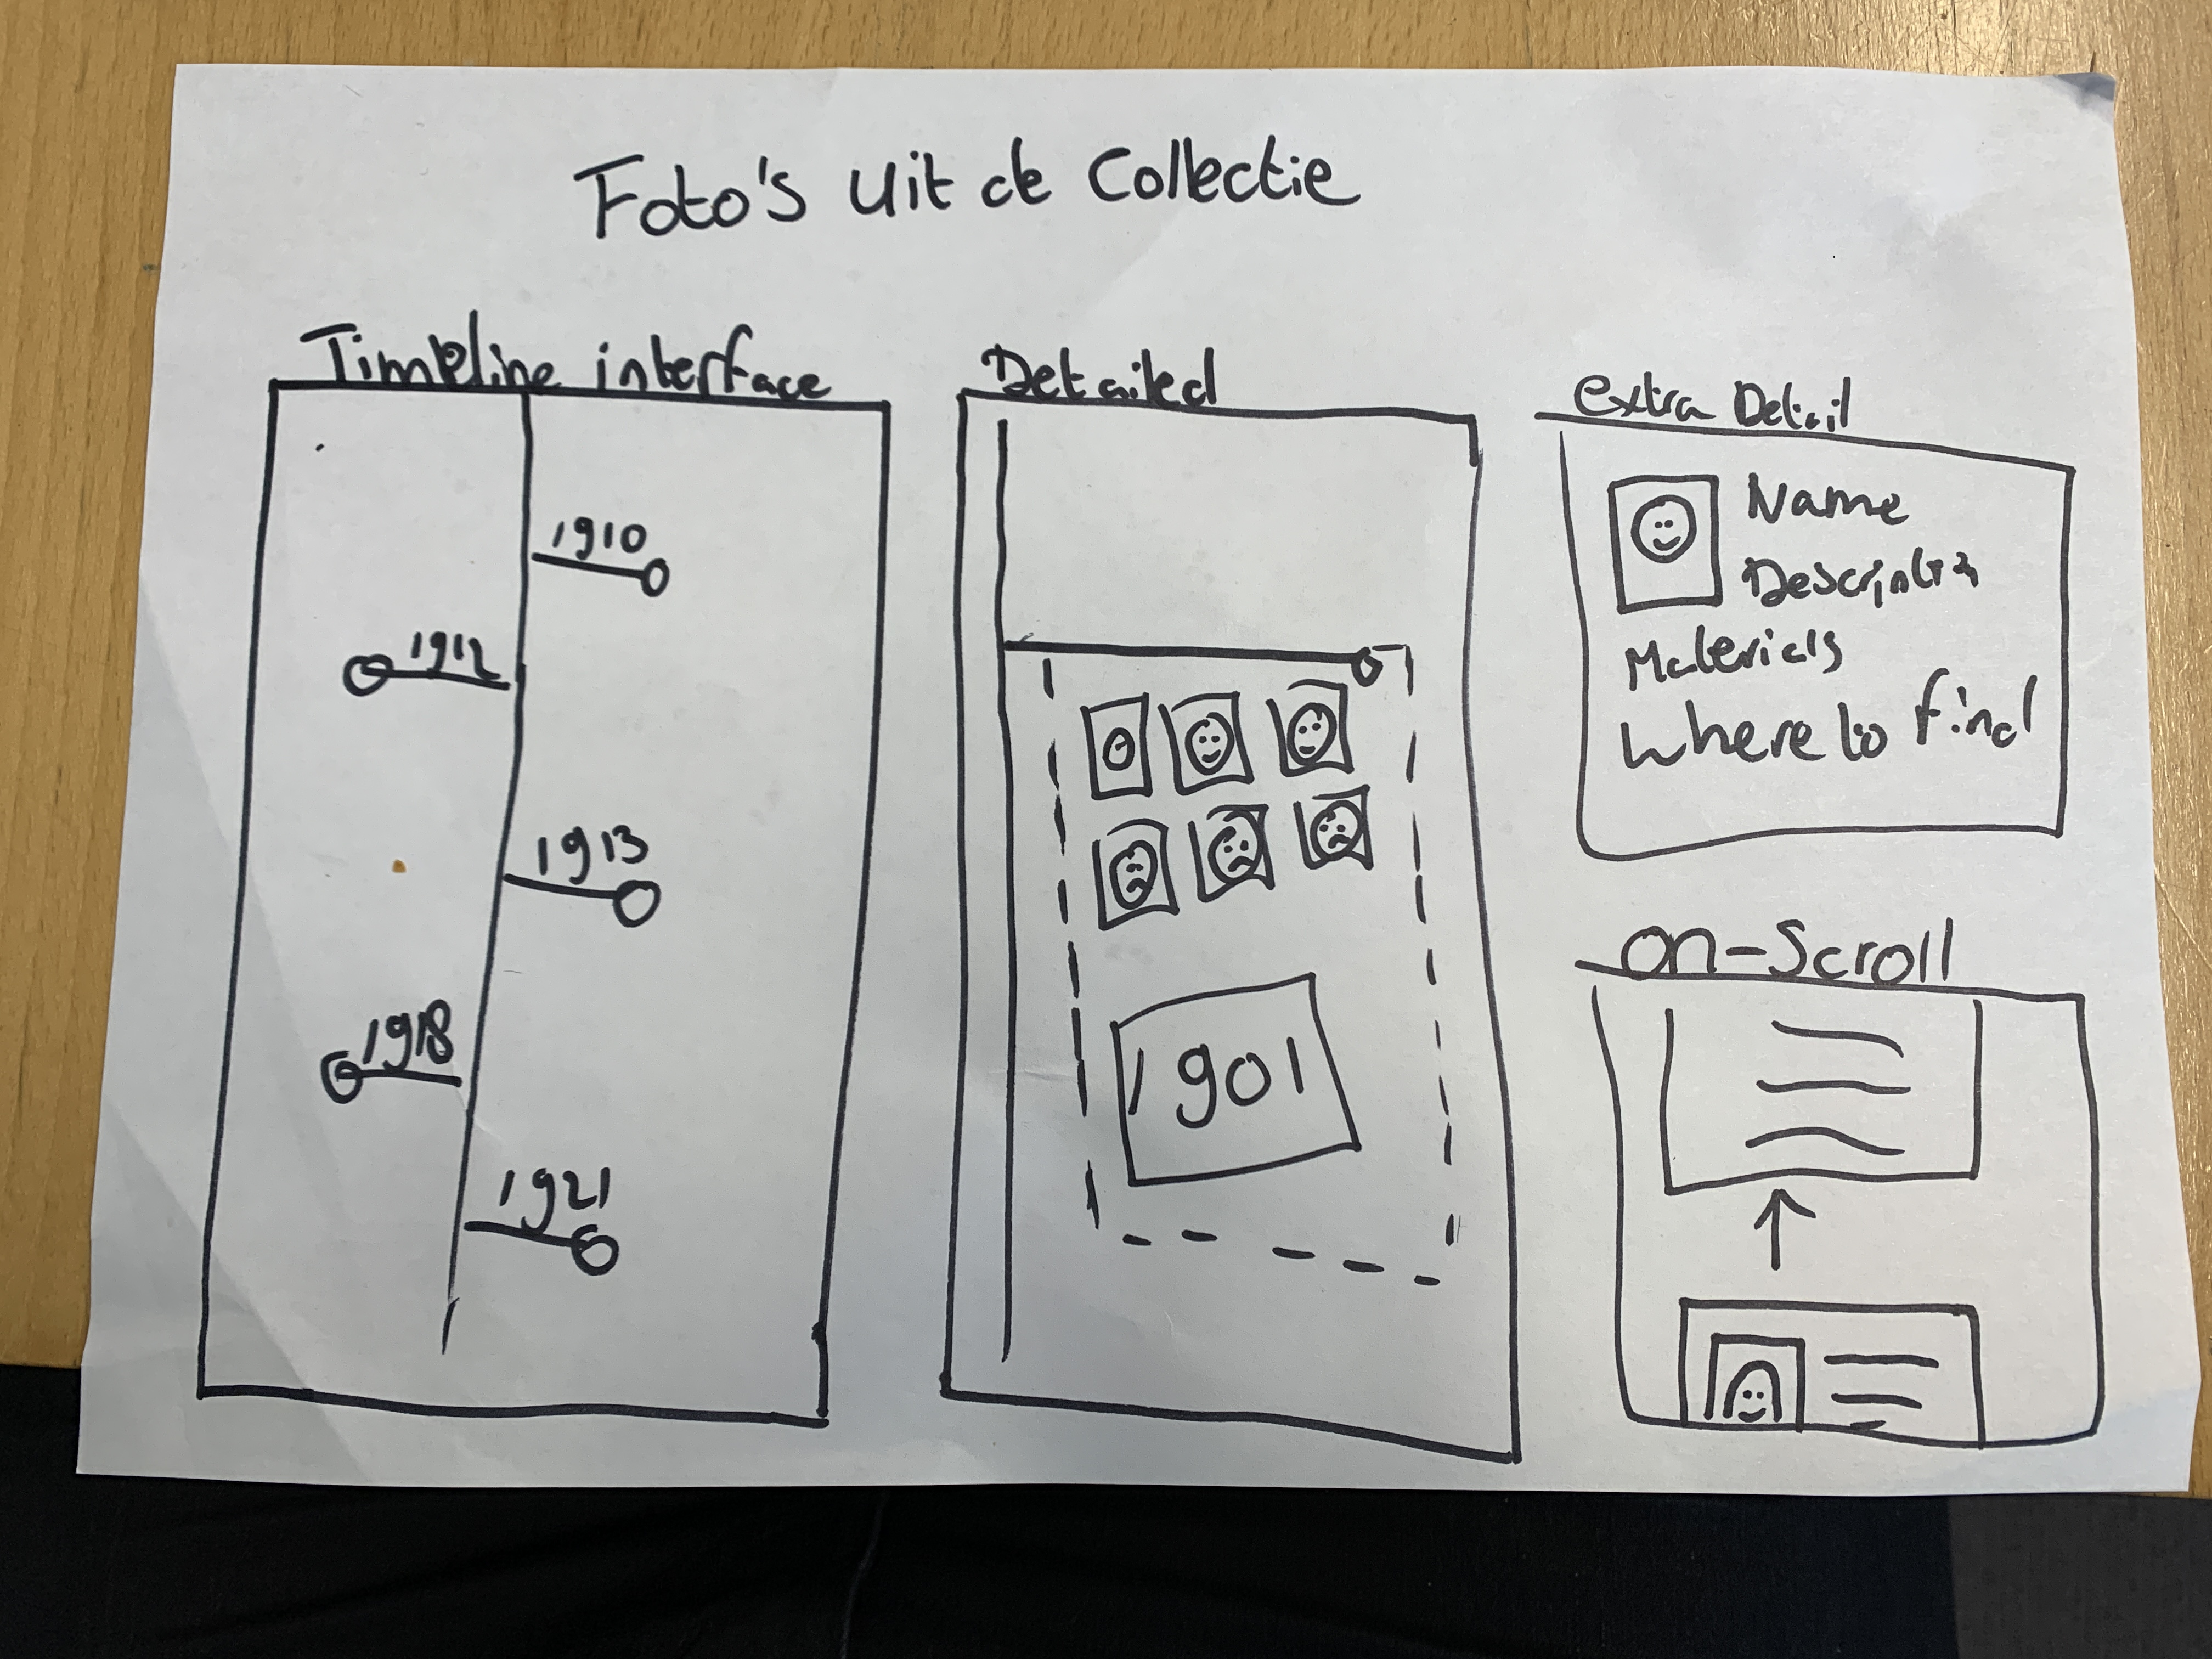 Foto's uit de Collectie
Timeline interface
1910
1912
1913
1918
1921
Detailed
1901
extra Detail
Name
Description
Materials
where to find
on-Scroll